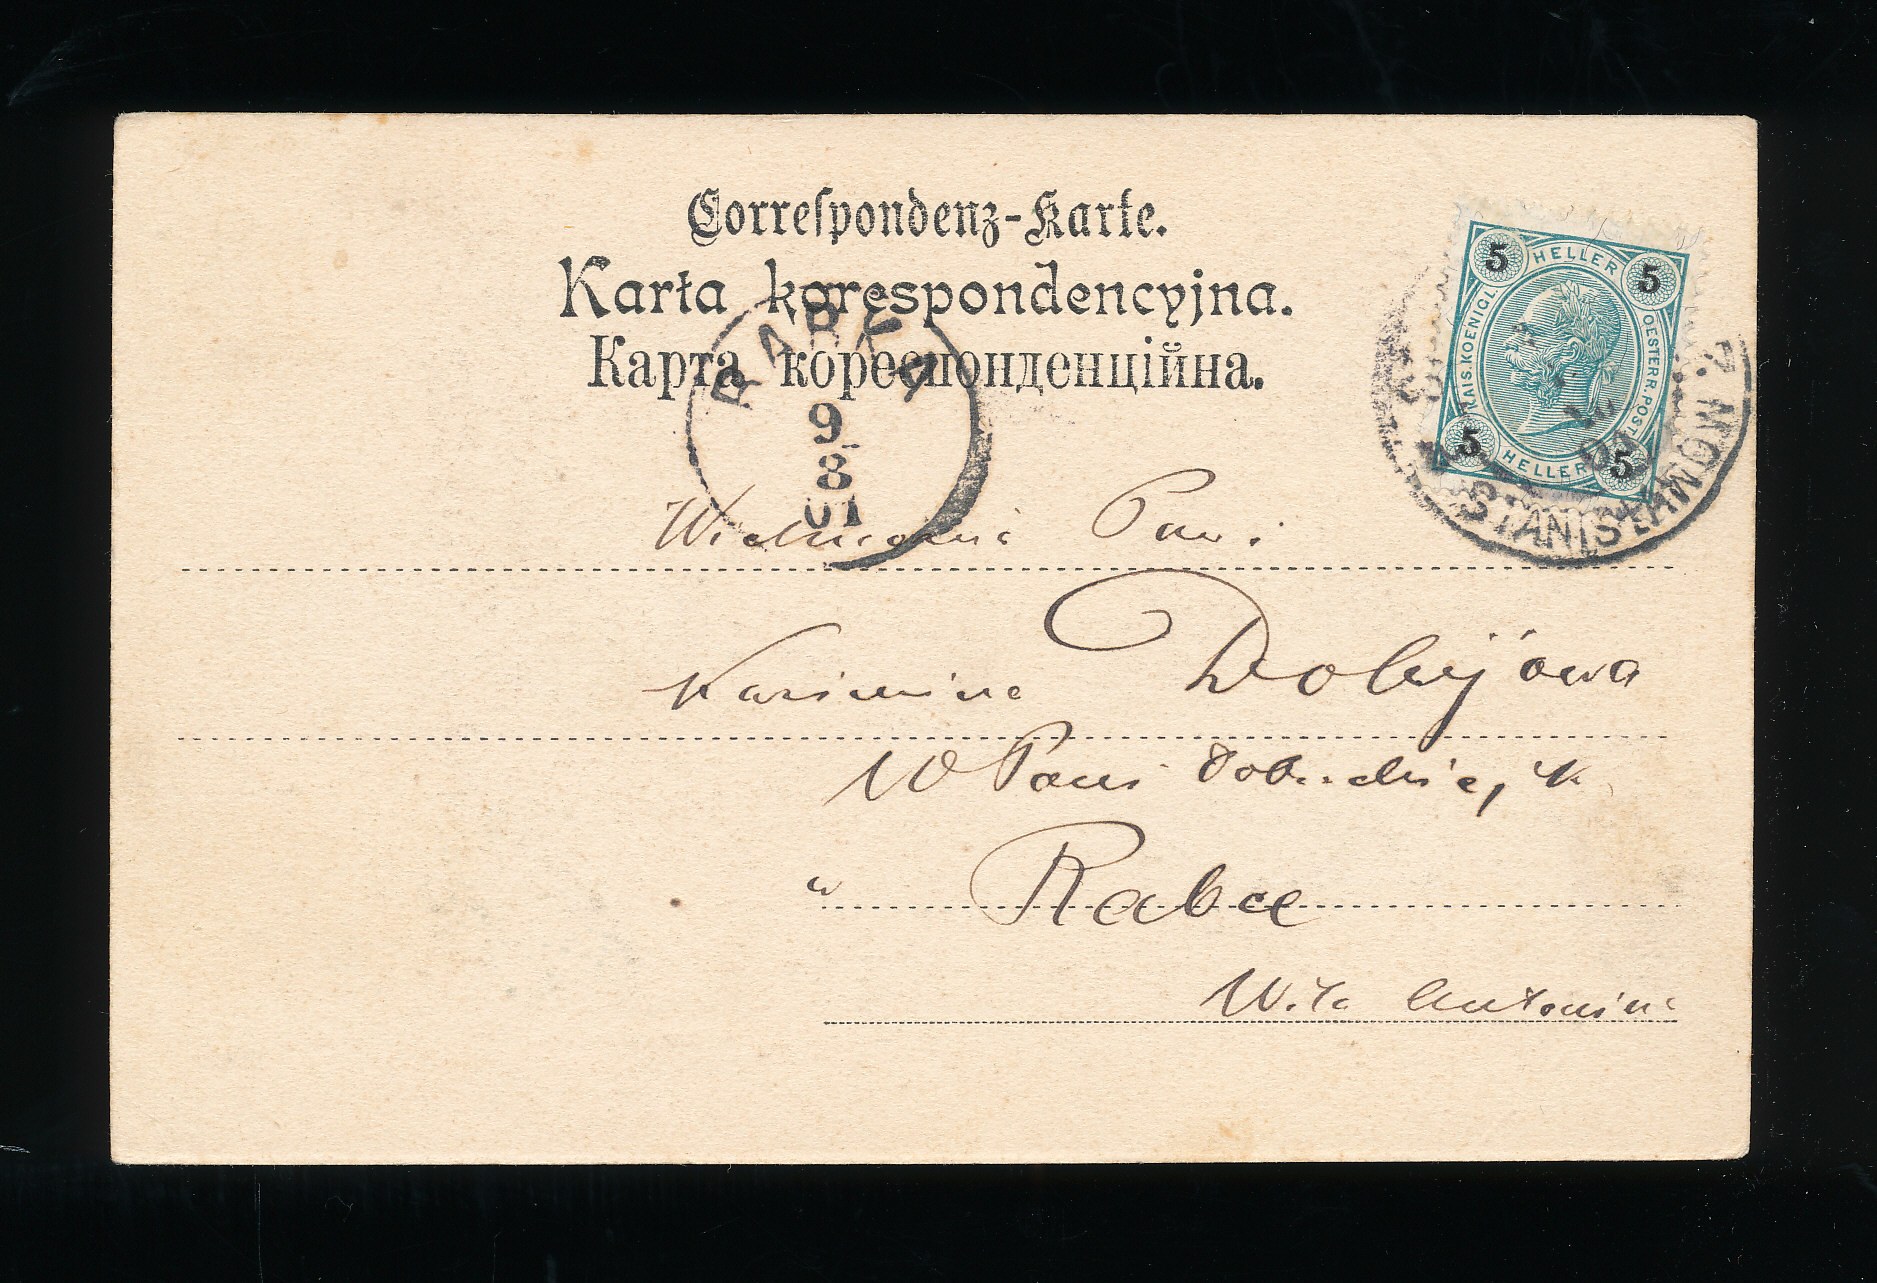 Correspondenz-Karte.
Karta korespondencyjna.
Карта кореспонденційна.
RABKA
9
8
01
5 HELLER 5
KAIS. KOENIGL. OESTERR. POST
5 HELLER 5
STANISŁ
Wielmożna Pani
Kazimiera Dobijowa
W Pani
w Rabce
Willa Antonina